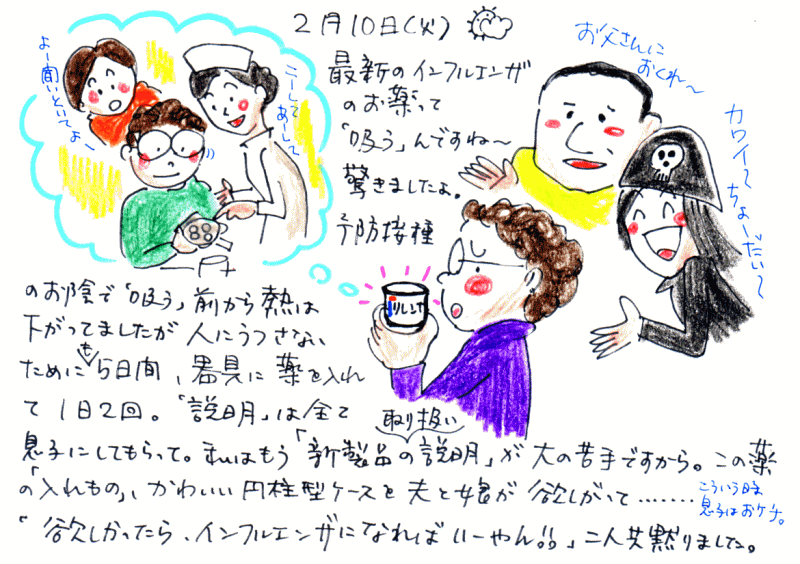 2月10日(火)
最新のインフルエンザ
のお薬って
「吸う」んですね〜
驚きましたよ。
予防接種
のお陰で「吸う」前から熱は
下がってましたが人にうつさない
ためにも5日間、器具に薬を入れ
て1日2回。「説明」は全て
息子にしてもらって。私はもう「新製品の取り扱い説明」が大の苦手ですから。この薬
の「入れもの」、かわいい円柱型ケースを夫と娘が欲しがって………
こういう時
息子はおケチ。
「欲しかったら、インフルエンザになればいーやん!!」二人共黙りました。
よー聞いといてよー
こーして
あーして
お父さんに
おくれ〜
カワイ〜
ちょーだい〜
リレンザ